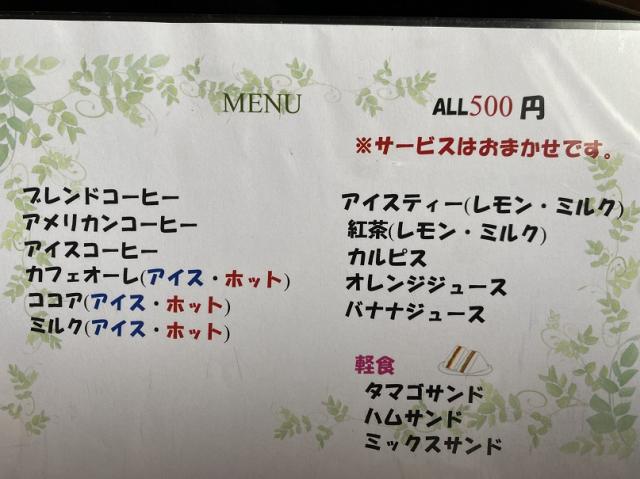 MENU
ALL500 円
※サービスはおまかせです。
ブレンドコーヒー
アメリカンコーヒー
アイスコーヒー
カフェオーレ(アイス・ホット)
ココア(アイス・ホット)
ミルク(アイス・ホット)
アイスティー(レモン・ミルク)
紅茶(レモン・ミルク)
カルピス
オレンジジュース
バナナジュース
軽食
タマゴサンド
ハムサンド
ミックスサンド